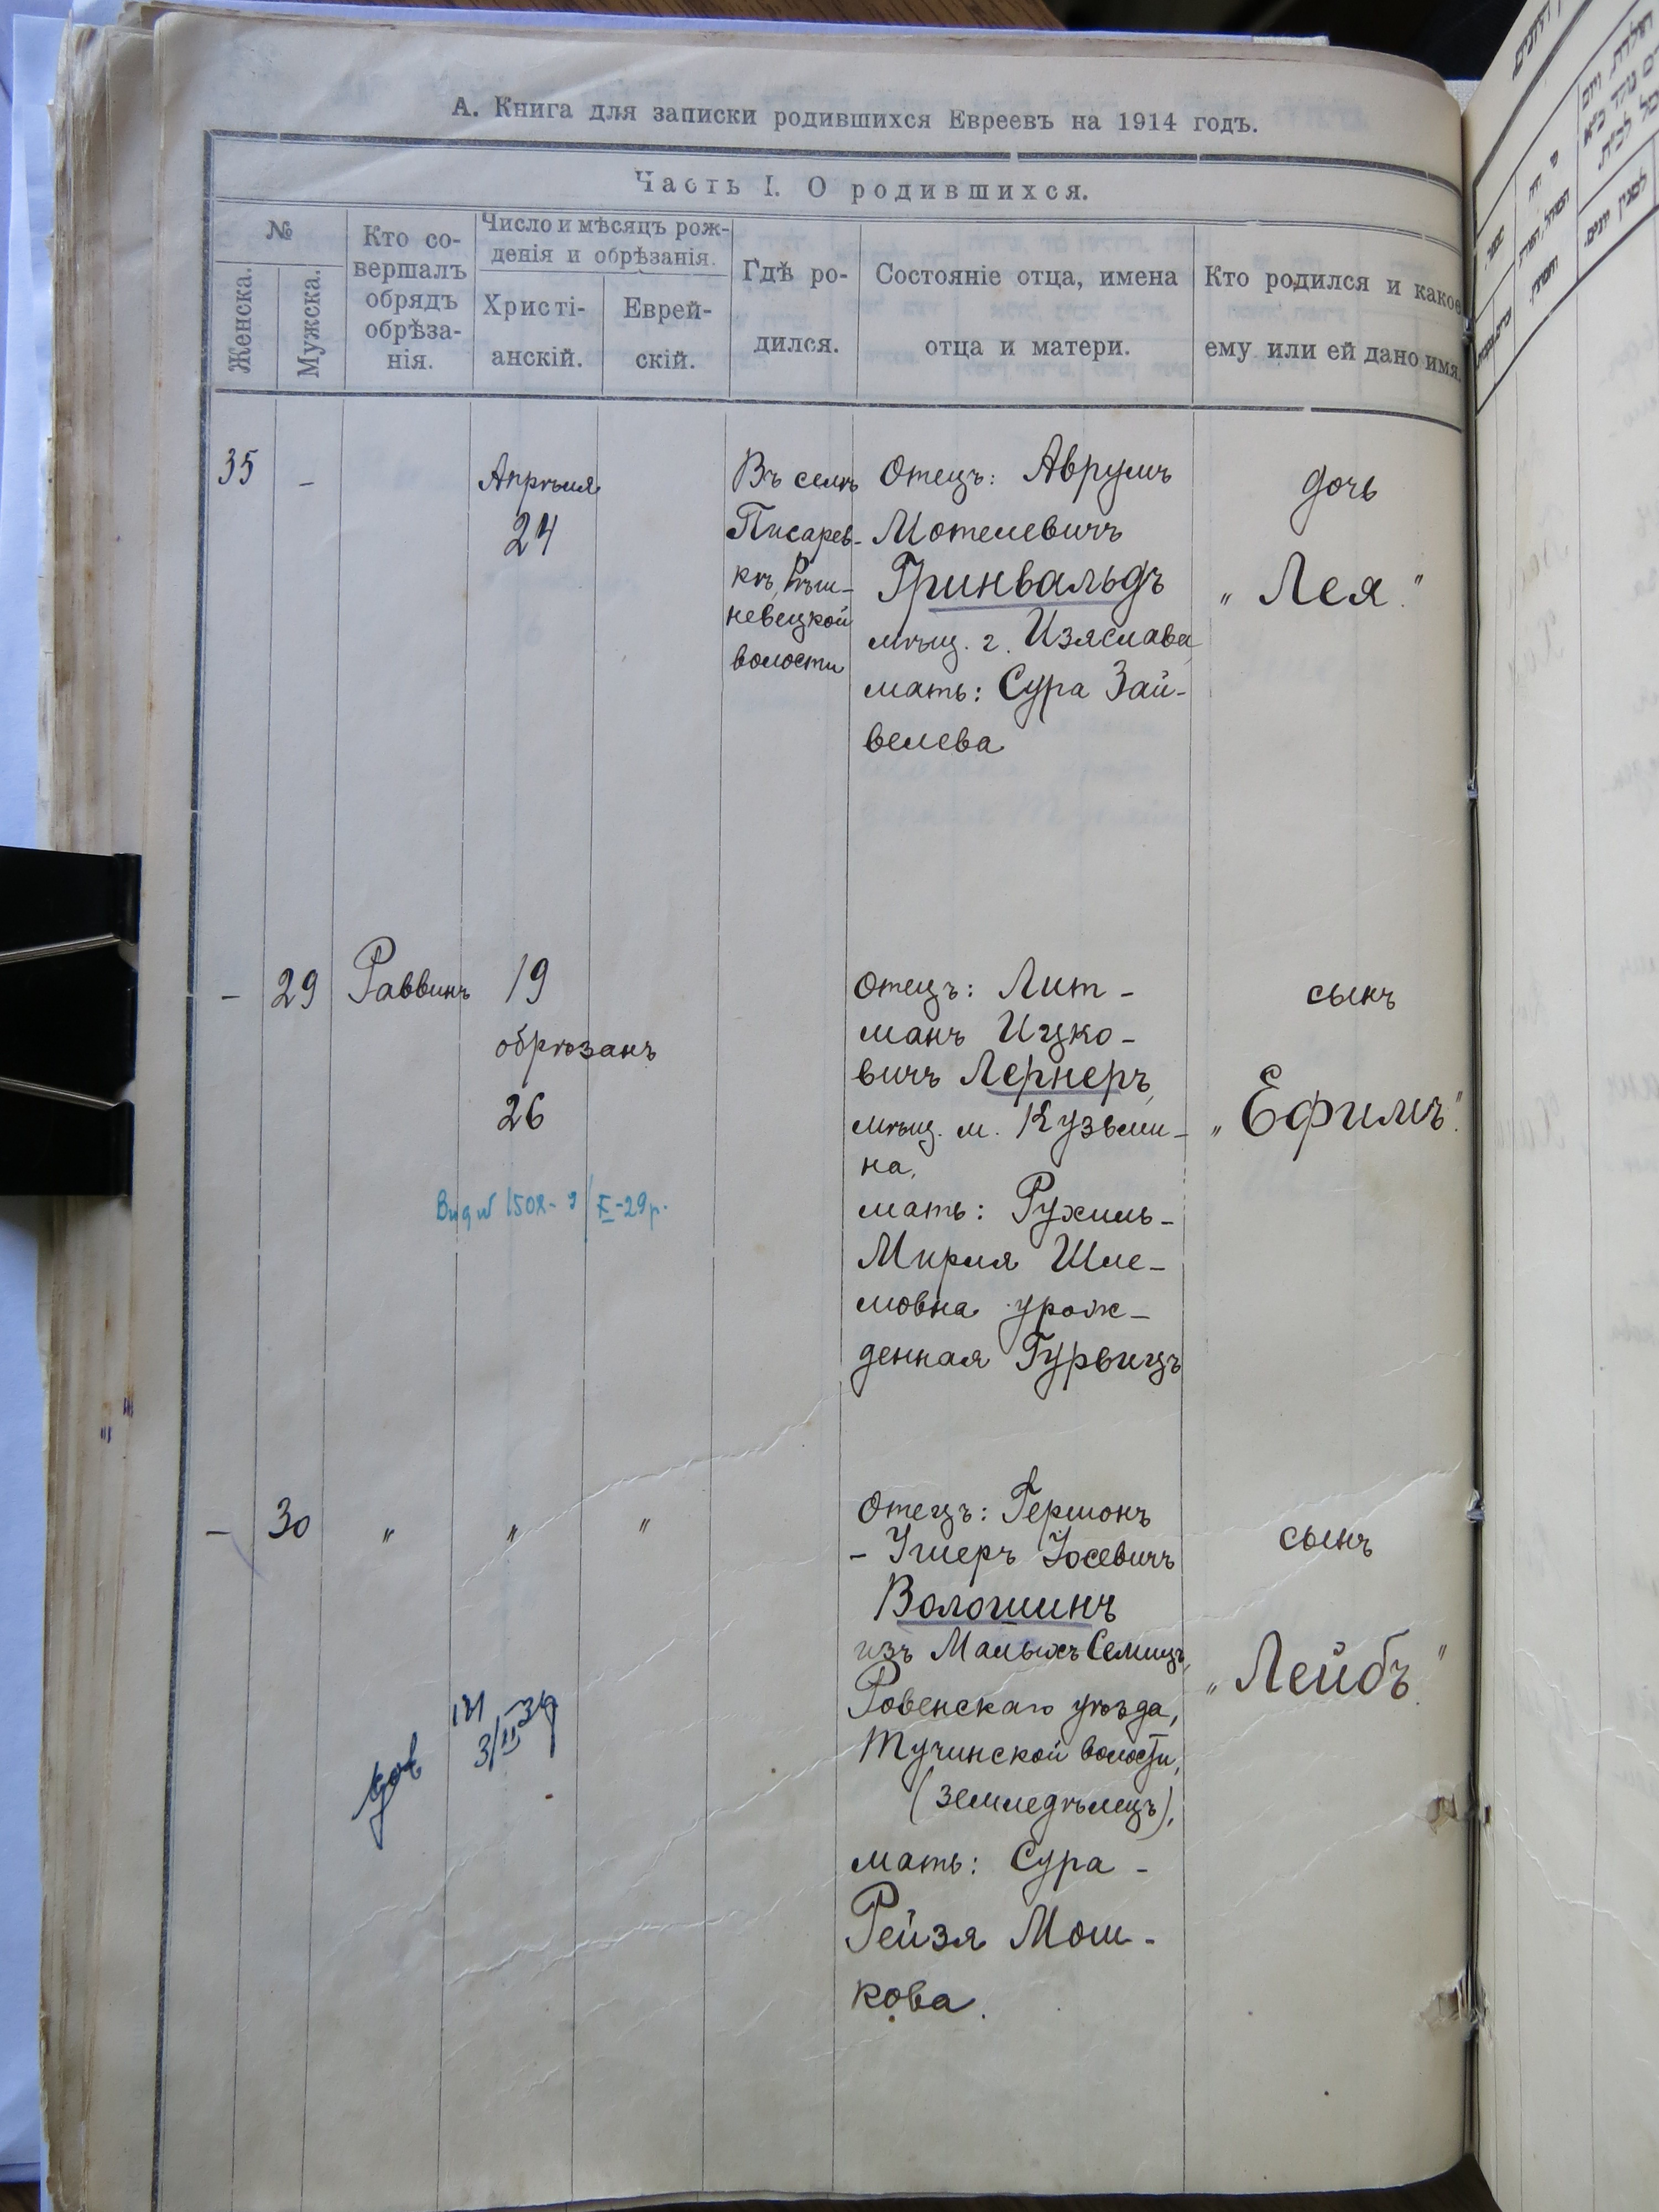 А. Книга для записки родившихся Евреевъ на 1914 годъ.
Часть I. О родившихся.
№
Женска.
Мужска.
Кто со-
вершалъ
обрядъ
обрѣза-
нія.
Число и мѣсяцъ рож-
денія и обрѣзанія.
Христі-
анскій.
Еврей-
скій.
Гдѣ ро-
дился.
Состояніе отца, имена
отца и матери.
Кто родился и какое
ему или ей дано имя.
35
–
Апрѣля
24
Въ селѣ
Писарев-
кѣ,
невецкой
волости
Отецъ: Аврумъ
Мотелевичъ
Гринвальдъ
мѣщ. г. Изяслава,
мать: Сура Зай-
велева
дочь
„Лея."
–
29
Раввинъ
19
обрѣзанъ
26
1508-9/X-29р.
Отецъ: Лит-
манъ Ицко-
вичъ Лернеръ,
мѣщ. м. Кузьми-
на,
мать: Рухиль-
Мирля Шле-
мовна урож-
денная Гурвицъ
сынъ
„Ефимъ".
–
30
"
"
"
Отецъ: Гершонъ
- Ушеръ Іосевичъ
Волошинъ
изъ Малыхъ Селищъ,
Ровенскаго уѣзда,
Тучинской волости,
(земледѣлецъ),
мать: Сура-
Рейзя Мош-
кова.
сынъ
„Лейбъ".
3/II 39